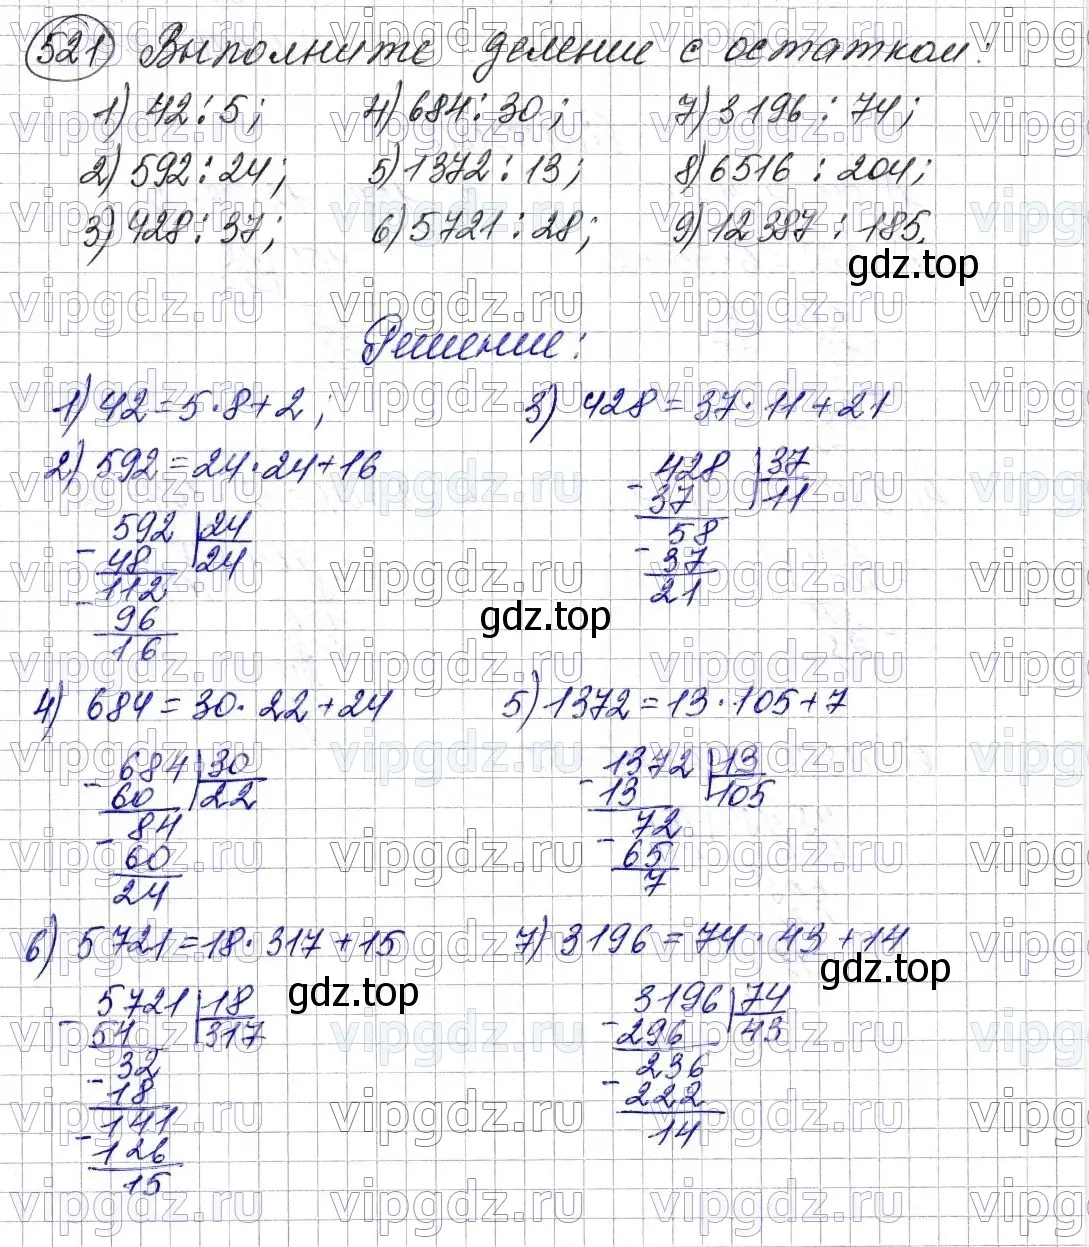 521) Выполните деление с остатком:
1) 42 : 5; 4) 684 : 30; 7) 3196 : 74;
2) 592 : 24; 5) 1372 : 13; 8) 6516 : 204;
3) 428 : 37; 6) 5721 : 28; 9) 12 387 : 185.
gdz.top
Решение:
1) 42 = 5 · 8 + 2; 3) 428 = 37 · 11 + 21
2) 592 = 24 · 24 + 16
428 | 37
- 37 | 11
58
- 37
21
592 | 24
- 48 | 24
112
- 96
16
gdz.top
4) 684 = 30 · 22 + 24 5) 1372 = 13 · 105 + 7
684 | 30
- 60 | 22
84
- 60
24
1372 | 13
- 13 | 105
72
- 65
7
6) 5721 = 18 · 317 + 15 7) 3196 = 74 · 43 + 14
gdz.top
gdz.top
5721 | 18
- 54 | 317
32
- 18
141
- 126
15
3196 | 74
- 296 | 43
236
- 222
14
vipgdz.ru